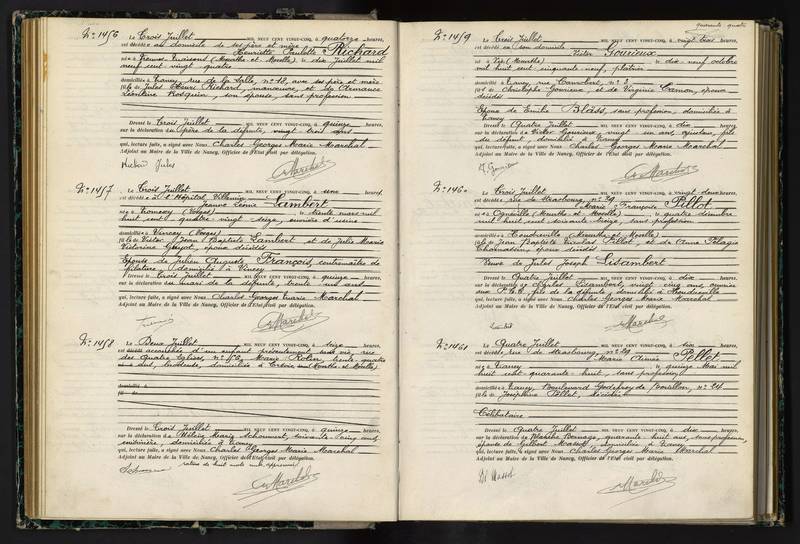 quarante quatre
N° 1456
Le Trois Juillet MIL NEUF CENT VINGT-CINQ, à quatorze heures,
est décédée au domicile de ses père et mère
Henriette Paulette Richard
née à (Meurthe et Moselle) le dix Juillet mil
neuf cent vingt quatre
domiciliée à Nancy, rue de la n° 18, avec ses père et mère
fille de Jules Henri Richard, manœuvre, et de
son épouse, sans profession
Dressé le Trois Juillet MIL NEUF CENT VINGT-CINQ, à quinze heures,
sur la déclaration du père de la défunte, vingt trois ans
qui, lecture faite, a signé avec Nous Charles Georges Marie Marchal
Adjoint au Maire de la Ville de Nancy, Officier de l'État civil par délégation.
Richard Jules
Marchal
N° 1457
Le Trois Juillet MIL NEUF CENT VINGT-CINQ, à une heures,
est décédée à l'Hôpital Villemin
Jeanne Lambert
née à (Vosges) le trente mars mil
huit cent quatre vingt seize, ouvrière d'usine
domiciliée à Vincey (Vosges)
fille de Victor Jean Baptiste Lambert et de Julie Marie
Victorine époux décédés
Epouse de Julien Auguste François, contremaître de
filature, domicilié à Vincey
Dressé le Trois Juillet MIL NEUF CENT VINGT-CINQ, à quinze heures,
sur la déclaration du mari de la défunte, trente ans
qui, lecture faite, a signé avec Nous Charles Georges Marie Marchal
Adjoint au Maire de la Ville de Nancy, Officier de l'État civil par délégation.
Marchal
N° 1458
Le Deux Juillet MIL NEUF CENT VINGT-CINQ, à seize heures,
est accouchée d'un enfant présentement sans vie, rue
des Quatre Eglises, n° Marie Rolin, trente quatre
ans, domiciliée à (Meurthe et Moselle)
domicilié à
fil de
Dressé le Trois Juillet MIL NEUF CENT VINGT-CINQ, à quinze heures,
sur la déclaration de Marie soixante cinq ans,
domiciliée à Nancy
qui, lecture faite, a signé avec Nous Charles Georges Marie Marchal
Adjoint au Maire de la Ville de Nancy, Officier de l'État civil par délégation.
rature de huit mots nuls approuvée
Marchal
N° 1459
Le Trois Juillet MIL NEUF CENT VINGT-CINQ, à vingt trois heures,
est décédé en son domicile
Victor Gourieux
né à (Meurthe) le dix neuf octobre
mil huit cent cinquante neuf, plâtrier
domicilié à Nancy, rue n° 3
fils de Christophe Gourieux, et de Virginie époux
décédés
Epoux de Emilie Blass, sans profession, domiciliée à
Nancy
Dressé le Quatre Juillet MIL NEUF CENT VINGT-CINQ, à dix heures,
sur la déclaration de Victor Gourieux, vingt un ans, fils
du défunt, domicilié à Nancy
qui, lecture faite, a signé avec Nous Charles Georges Marie Marchal
Adjoint au Maire de la Ville de Nancy, Officier de l'État civil par délégation.
V. Gourieux
Marchal
N° 1460
Le Trois Juillet MIL NEUF CENT VINGT-CINQ, à vingt deux heures,
est décédée rue de Strasbourg, n° 29
Marie Françoise Pillot
née à Ognéville (Meurthe et Moselle) le quatre décembre
mil huit cent soixante treize, sans profession
domiciliée à Houdreville (Meurthe et Moselle)
fille de Jean Baptiste Nicolas Pillot, et de Anne Pélagie
époux décédés
Veuve de Jules Joseph Lisambert
Dressé le Quatre Juillet MIL NEUF CENT VINGT-CINQ, à dix heures,
sur la déclaration de Charles Lisambert, vingt cinq ans,
fils de la défunte, domicilié à Houdreville
qui, lecture faite, a signé avec Nous Charles Georges Marie Marchal
Adjoint au Maire de la Ville de Nancy, Officier de l'État civil par délégation.
Marchal
N° 1461
Le Quatre Juillet MIL NEUF CENT VINGT-CINQ, à six heures,
est décédée rue de Strasbourg, n° 29
Marie Aimée Pellet
née à Nancy le quinze Mai mil
huit cent quarante huit, sans profession
domiciliée à Nancy, Boulevard Godefroy de Bouillon, n° 24
fille de Joséphine Pellet, décédée
Célibataire
Dressé le Quatre Juillet MIL NEUF CENT VINGT-CINQ, à dix heures,
sur la déclaration de Blanche quarante huit ans, sans profession,
épouse de Gilbert domiciliée à Nancy
qui, lecture faite, a signé avec Nous Charles Georges Marie Marchal
Adjoint au Maire de la Ville de Nancy, Officier de l'État civil par délégation.
Marchal